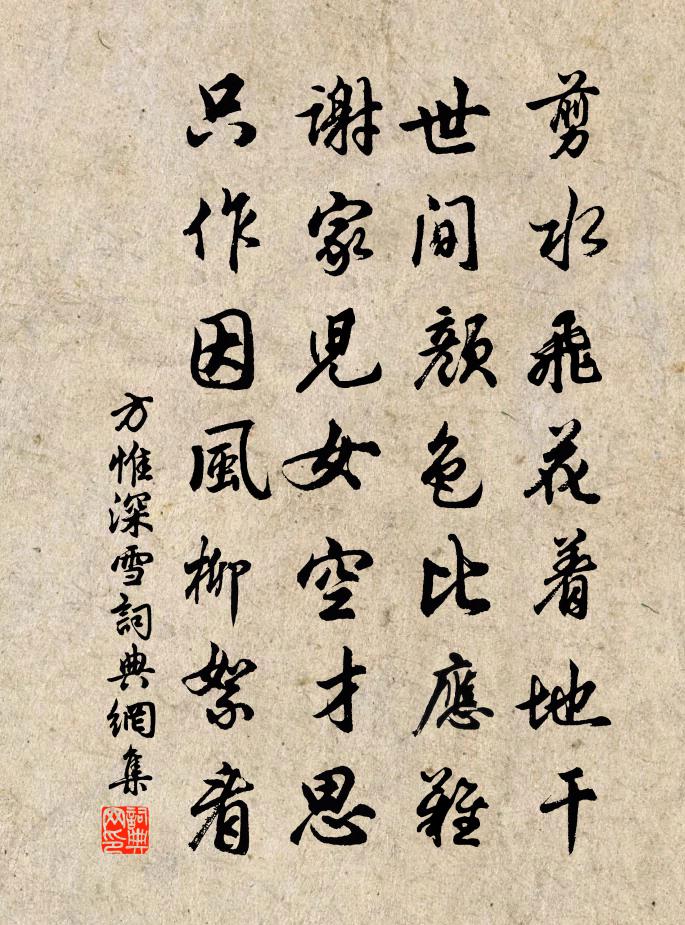 剪水飛花着地干
世間顔色比應難
謝家児女空才思
只作因風柳絮看
方惟深雪詞典網集
詞典網印